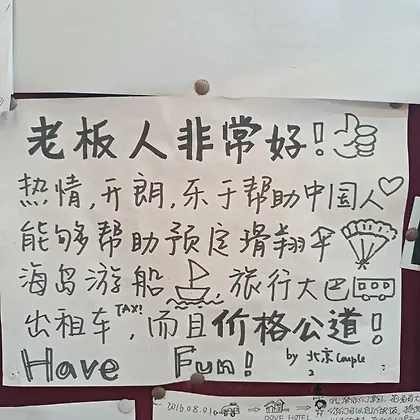 老板人非常好!
热情,开朗,乐于帮助中国人
能够帮助预定滑翔伞
海岛游船 旅行大巴
出租车TAXI,而且价格公道!
Have Fun!
by 北京Couple
2016.08.01
DOVE HOTEL